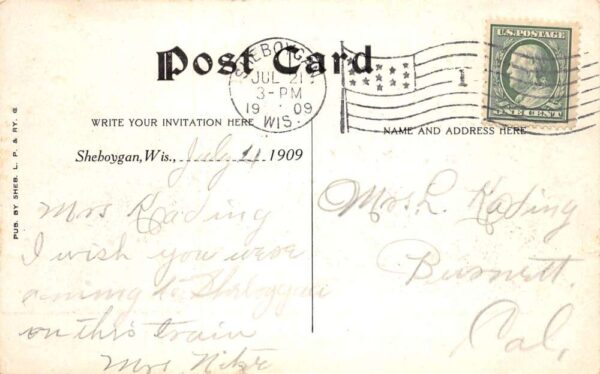 Post Card
SHEBOYGAN
JUL 21
3-PM
19 09
WIS.
1
U.S. POSTAGE
ONE CENT
WRITE YOUR INVITATION HERE
NAME AND ADDRESS HERE
Sheboygan, Wis., July 1909
PUB. BY SHEB. L. P. & RY. @
Mrs Kading
I wish you were
coming to Sheboygan
on this train
Mrs
Mrs. L. Kading
Burnett.
Cal.